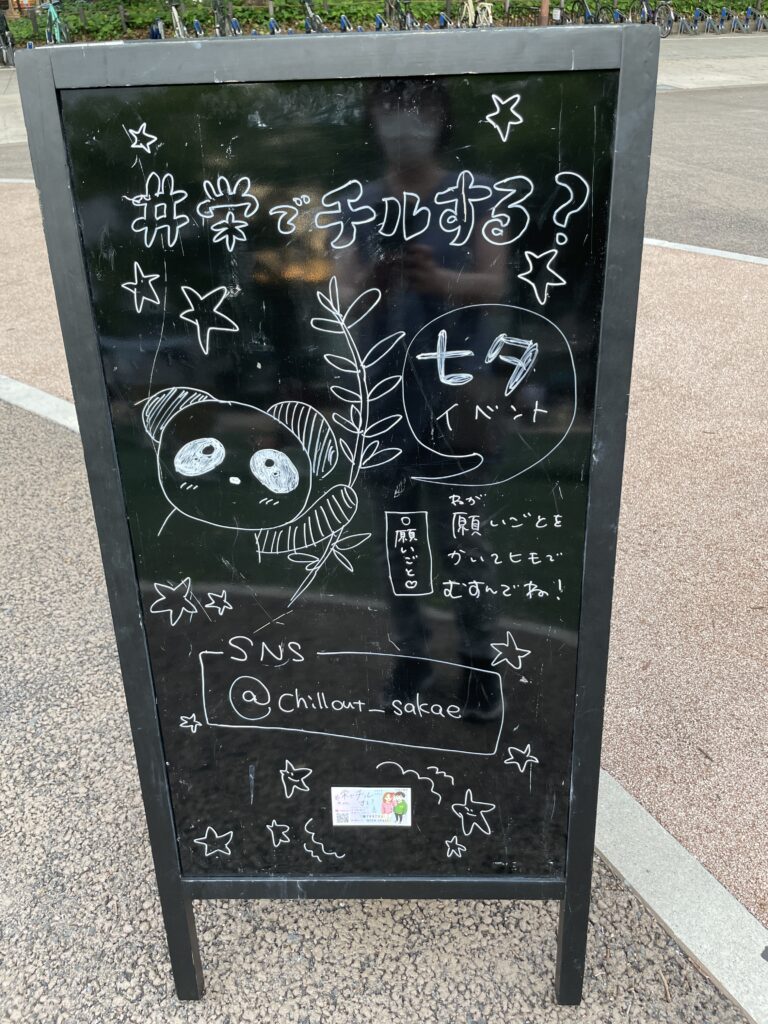 #栄でチルする?
七夕
イベント
ねが
願いごとを
かいてヒモで
むすんでね!
願いごと♡
SNS
@chillout_sakae